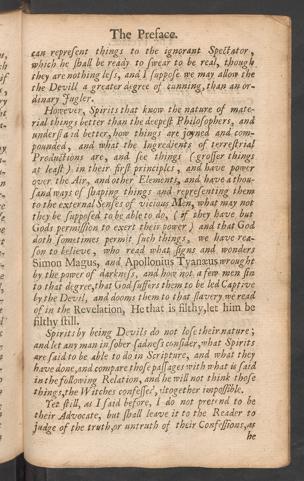 The Preface.
can represent things to the ignorant Spectator,
which he shall be ready to swear to be real, though
they are nothing less, and I suppose we may allow the
the Devill a greater degree of cunning, than an or-
dinary Jugler.
However, Spirits that know the nature of mate-
rial things better than the deepest Philosophers, and
understa id better, how things are joyned and com-
pounded, and what the Ingredients of terrestrial
Productions are, and see things (grosser things
at least) in their first principles, and have power
over the Air, and other Elements, and have a thou-
sand ways of shaping things and representing them
to the external Senses of vicious Men, what may not
they be supposed to be able to do, (if they have but
Gods permission to exert their power) and that God
doth sometimes permit such things, we have rea-
son to believe, who read what signs and wonders
Simon Magus, and Apollonius Tyanæus wrought
by the power of darkness, and how not a few men sin
to that degree, that God suffers them to be led Captive
by the Devil, and dooms them to that slavery we read
of in the Revelation, He that is filthy, let him be
filthy still.
Spirits by being Devils do not lose their nature;
and let any man in sober sadness consider, what Spirits
are said to be able to do in Scripture, and what they
have done, and compare those passages with what is said
in the following Relation, and he will not think those
things, the Witches confesse', altogether impossible.
Yet still, as I said before, I do not pretend to be
their Advocate, but shall leave it to the Reader to
judge of the truth, or untruth of their Confessions, as
he